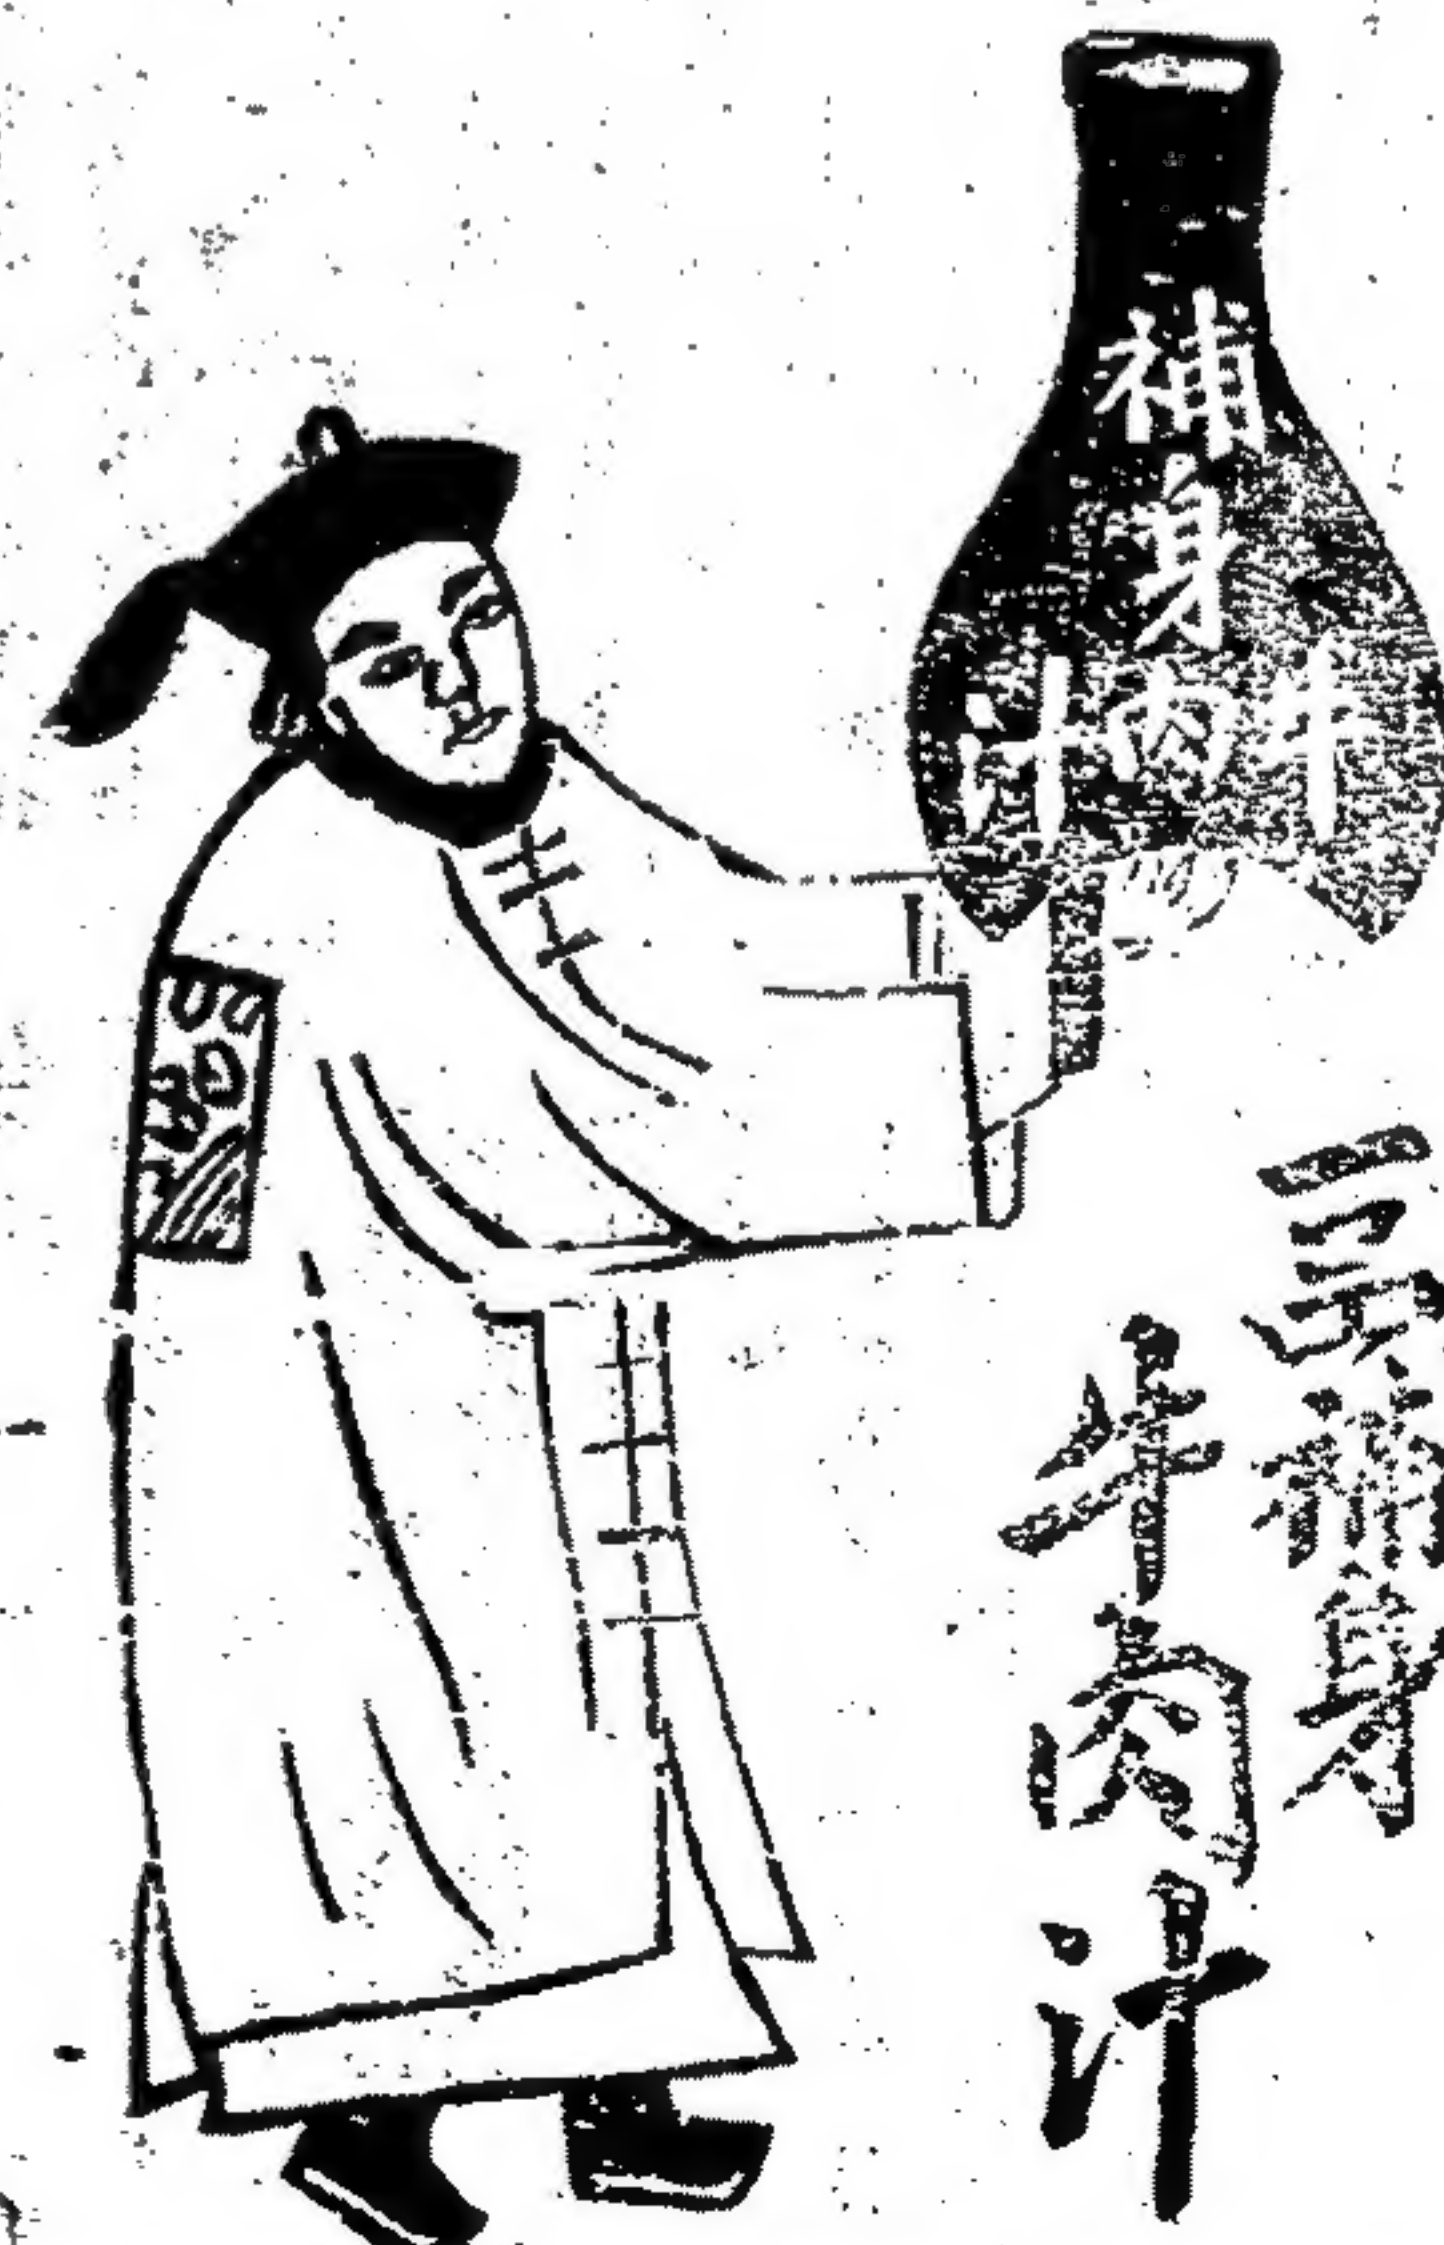 補身
牛肉汁
補身
牛肉汁